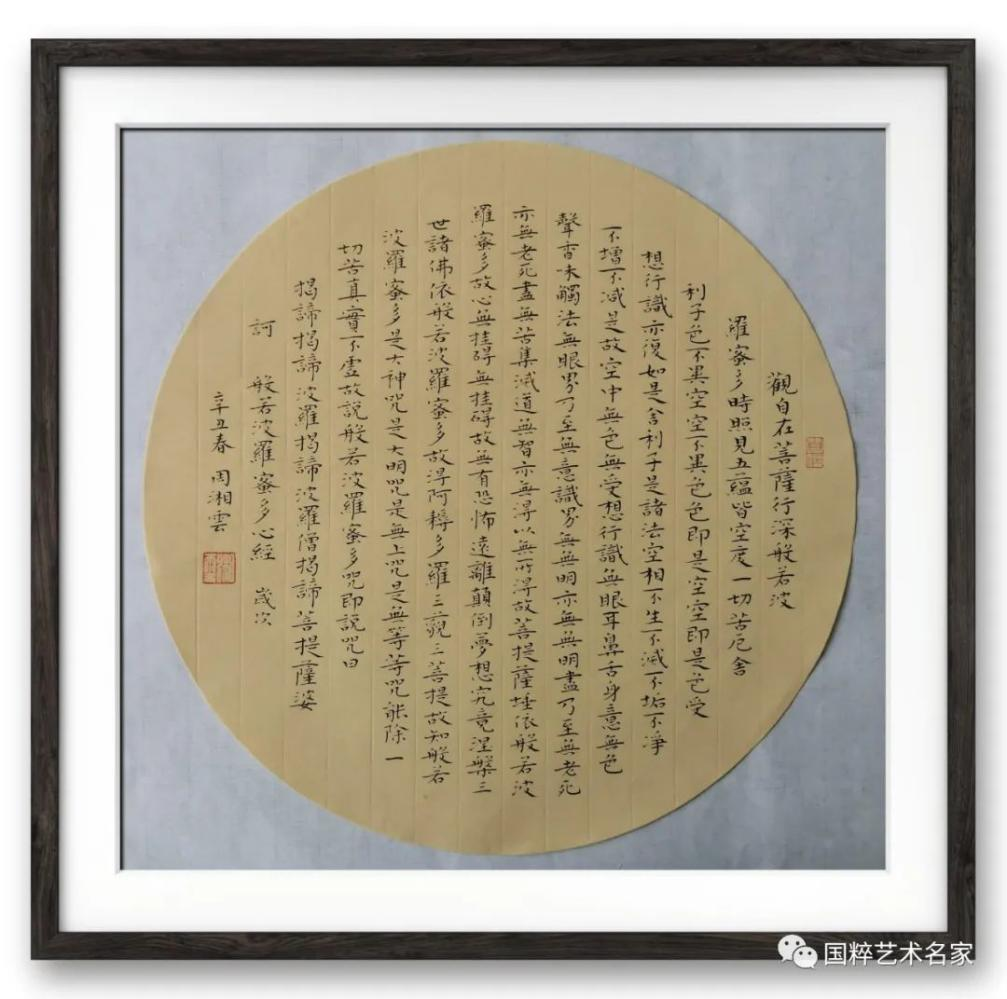 觀自在菩薩行深般若波
羅蜜多時照見五蘊皆空度一切苦厄舍
利子色不異空空不異色色即是空空即是色受
想行識亦復如是舍利子是諸法空相不生不滅不垢不淨
不增不減是故空中無色無受想行識無眼耳鼻舌身意無色
聲香味觸法無眼界乃至無意識界無無明亦無無明盡乃至無老死
亦無老死盡無苦集滅道無智亦無得以無所得故菩提薩埵依般若波
羅蜜多故心無挂礙無挂礙故無有恐怖遠離顛倒夢想究竟涅槃三
世諸佛依般若波羅蜜多故得阿耨多羅三藐三菩提故知般若
波羅蜜多是大神咒是大明咒是無上咒是無等等咒能除一
切苦真實不虛故說般若波羅蜜多咒即說咒曰
揭諦揭諦波羅揭諦波羅僧揭諦菩提薩婆
訶 般若波羅蜜多心經 歲次
辛丑春 周湘雲
国粹艺术名家